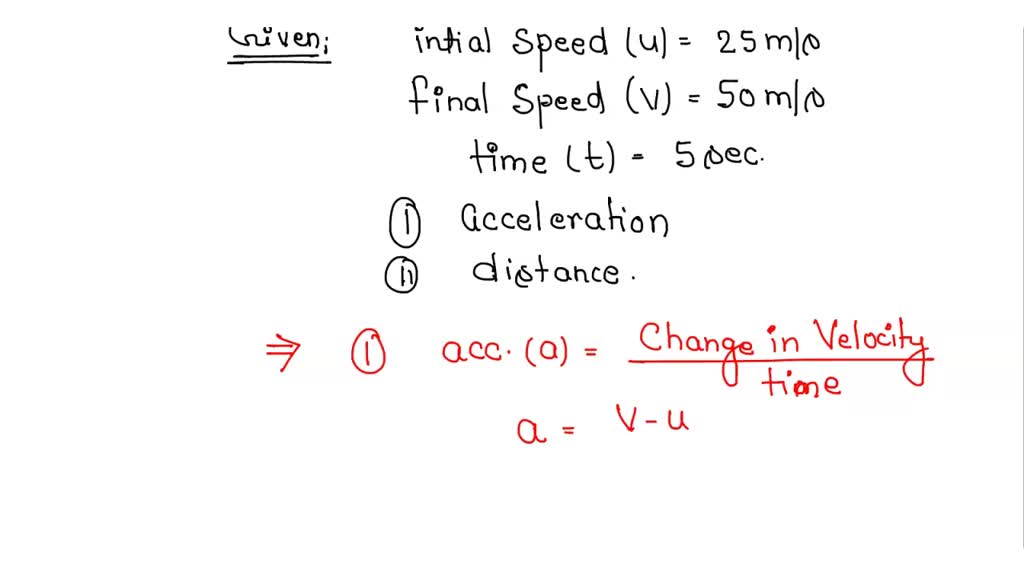 Given; intial Speed (u) = 25 m/s
final Speed (v) = 50 m/s
time (t) = 5 sec.
(i) acceleration
(ii) distance.
⇒ (i) acc. (a) = Change in Velocity / time
a = v - u